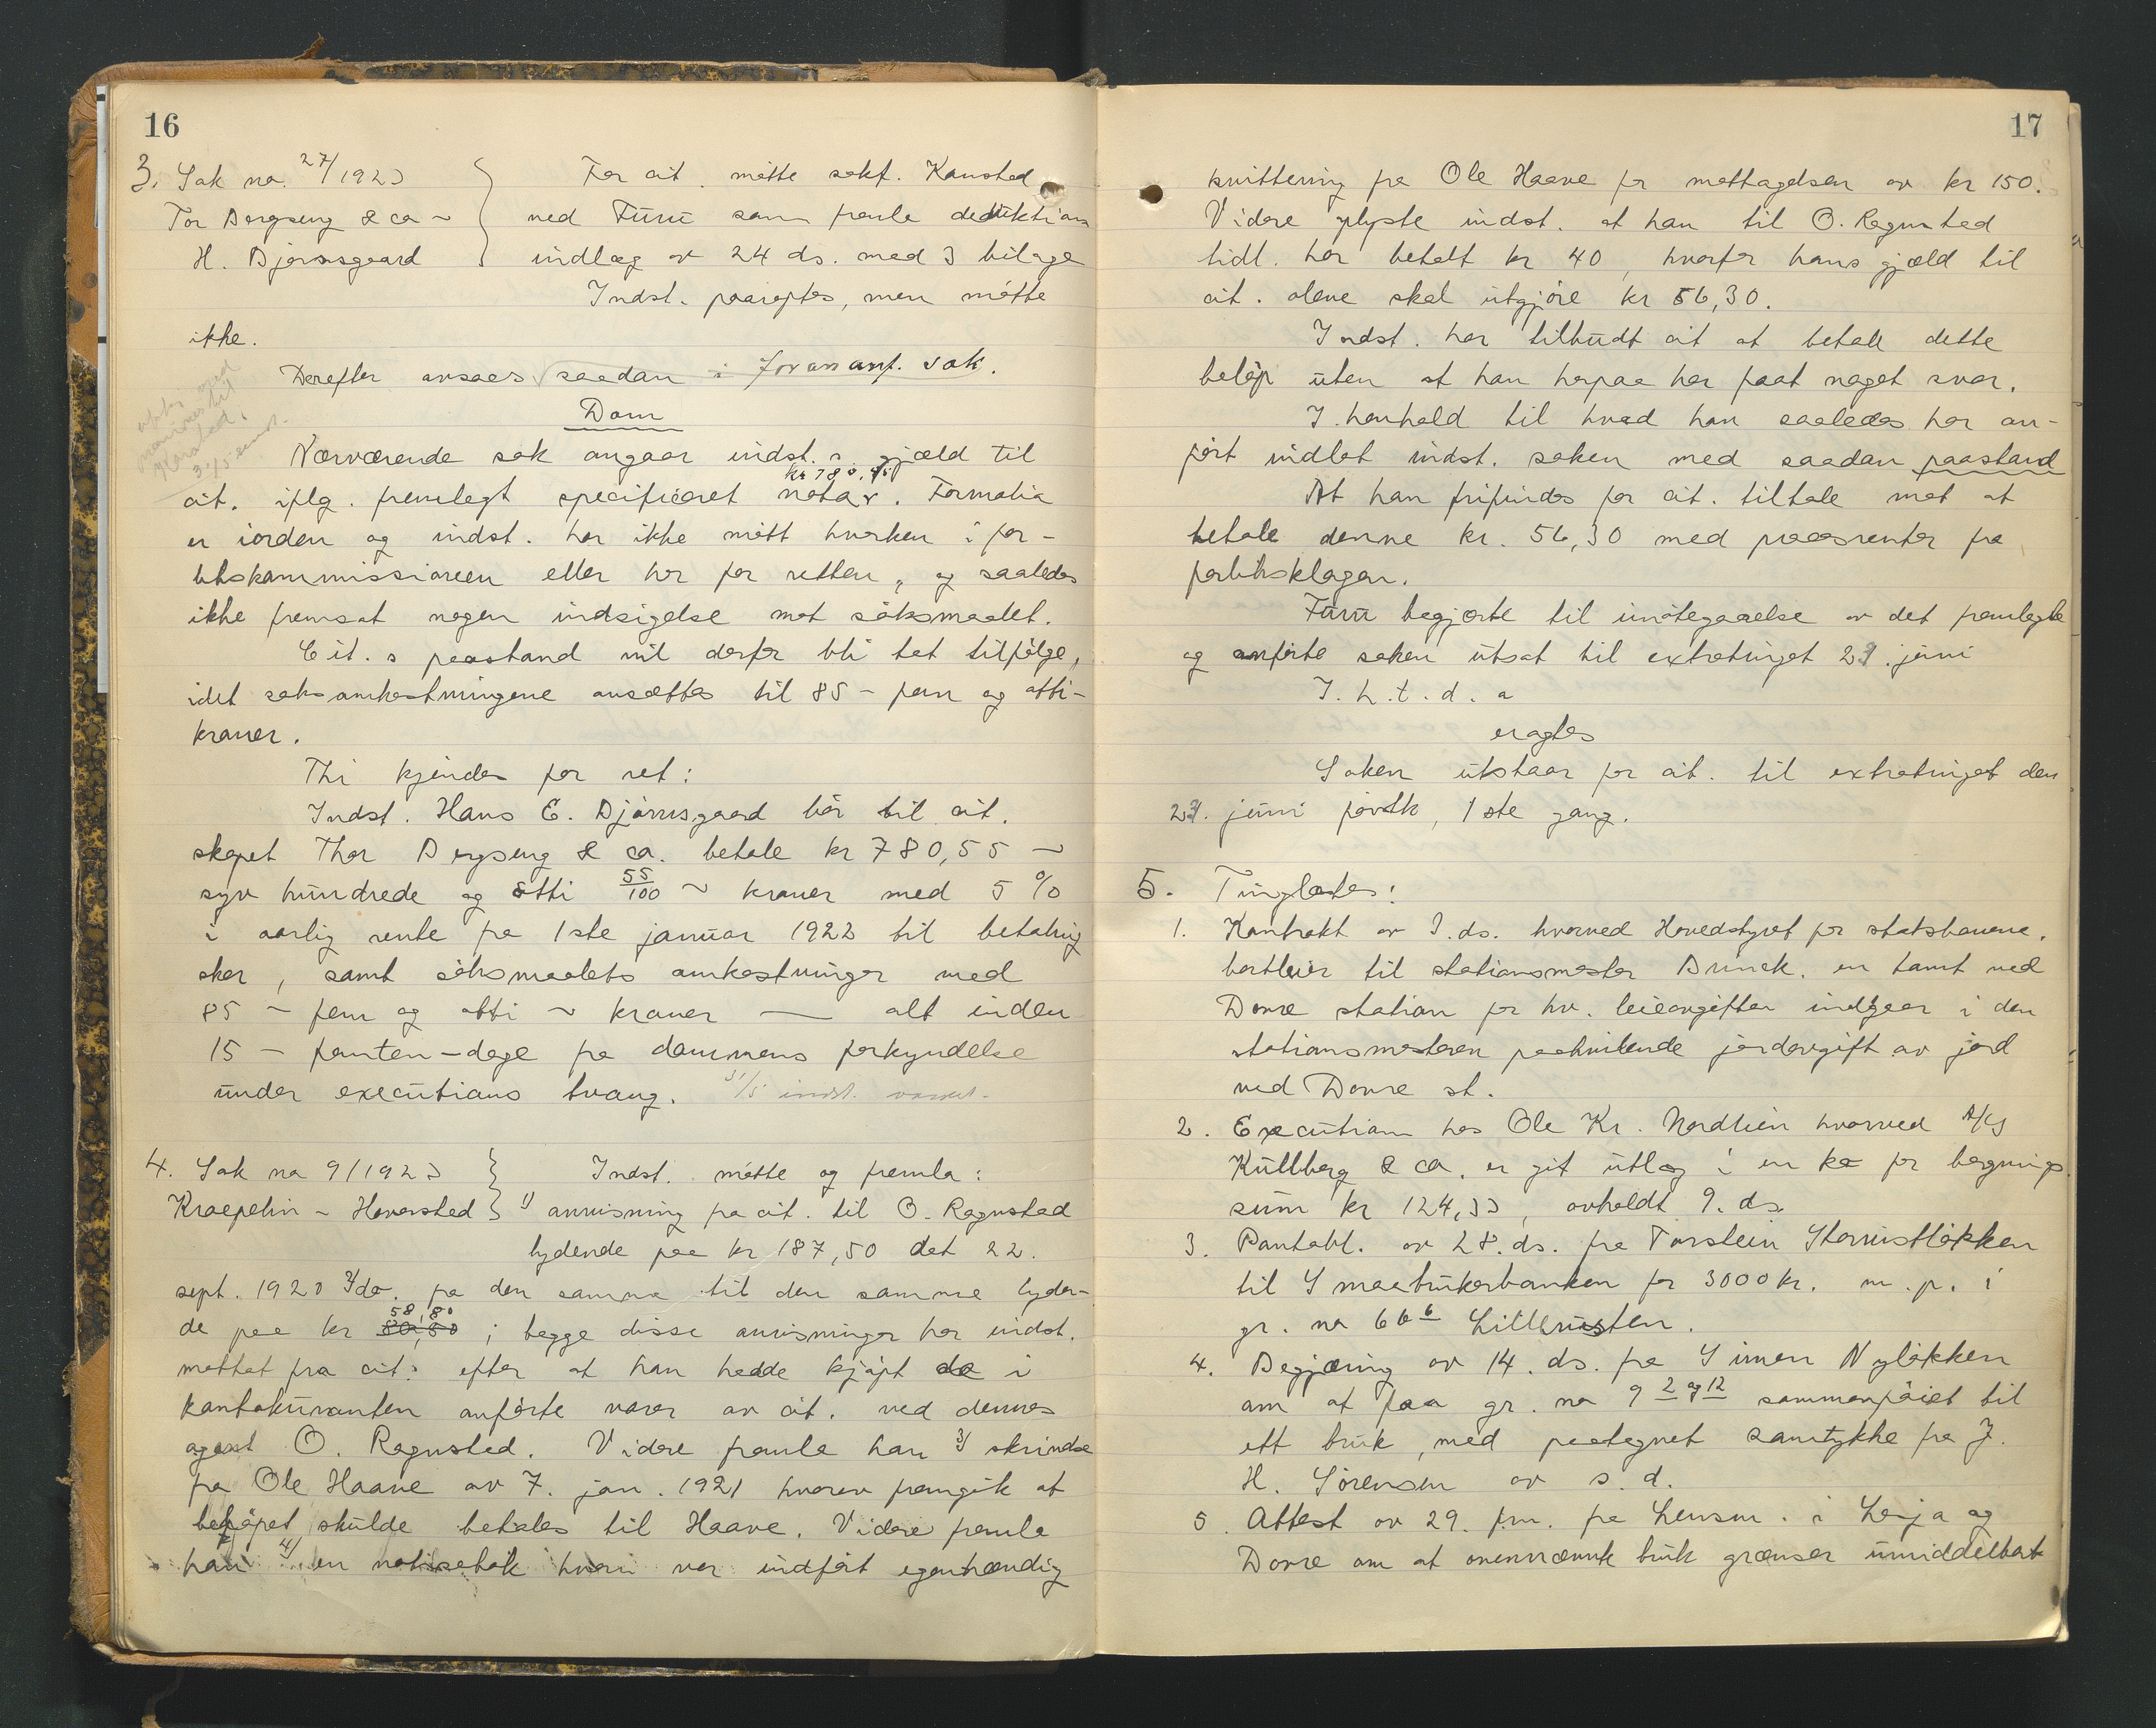 16
3. Sak no. 27/1923 } For cit. mötte sakf. Kanstad
Tor Bergseng & co ~ ved Furu som fremla deduktions
H. Bjørnsgaard indlæg av 24 ds. med 3 bilage
Indst. paaroptes, men mötte
ikke.
Derefter avsaes saadan i forananf. sak.
Dom
Nærværende sak angaar indst.s gjæld til
cit. iflg. fremlagt specificeret nota kr 780,55. Formalia
er iorden og indst. har ikke mött hverken i for-
likskommissionen eller her for retten, og saaledes
ikke fremsat nogen indsigelse mot söksmaalet.
Cit.s paastand vil derfor bli tat tilfölge,
idet saksomkostningene ansættes til 85 - fem og otti-
kroner.
Thi kjendes for ret:
Indst. Hans E. Bjørnsgaard bör til cit.
skapet Thor Bergseng & co. betale kr 780,55 ~
syv hundrede og otti 55/100 ~ kroner med 5 %
i aarlig rente fra 1ste januar 1922 til betaling
sker, samt söksmaalets omkostninger med
85 - fem og otti ~ kroner — alt inden
15 - femten - dage fra dommens forkyndelse
under executions tvang. 31/5 indst.
4. Sak no 9/1923 } Indst. mötte og fremla:
Kraepelin - Haversted } 1) anvisning fra cit. til O. Ragnstad
lydende paa kr 187,50 dat 22.
sept. 1920 2) do. fra den samme til den samme lyden-
de paa kr 58,80 ; begge disse anvisninger har indst.
mottat fra cit. efter at han hadde kjöpt de i
kontokuranten anförte varer av cit. ved dennes
agent O. Ragnsted. Videre fremla han 3) skrivelse
fra Ole Haave av 7. jan. 1921 hvorav fremgik at
belöpet skulde betales til Haave. Videre fremla
han 4) en notisebok hvori var indfört egenhændig
17
kvittering fra Ole Haave for mottagelsen av kr 150.
Videre oplyste indst. at han til O. Ragnsted
tidl. har betalt kr 40, hvorfor hans gjæld til
cit. alene skal utgjöre kr 56,30.
Indst. har tilbudt cit at betale dette
belöp uten at han herpaa har faat noget svar.
I henhold til hvad han saaledes har an-
fört indlot indst. saken med saadan paastand
At han frifindes for cit. tiltale mot at
betale denne kr. 56,30 med procesrenter fra
forliksklagen.
Furu begjærte til imötegaaelse av det fremlagte
og anförte saken utsat til extratinget 21. juni
I. h. t. d. a
eragtes
Saken utstaar for cit. til extratinget den
21. juni förstk, 1ste gang.
5. Tinglæstes:
1. Kontrakt av 3. ds. hvorved Hovedstyret for statsbanene.
bortleier til stationsmester Brinck. en tomt ved
Dovre station for hv. leieavgiften indgaar i den
stationsmesteren paahvilende jordavgift av jord
ved Dovre st.
2. Execution hos Ole Kr. Nordlien hvorved A/S
Kullberg & co. er git utlæg i en ko for bergnings
sum kr 124,33, avholdt 9. ds.
3. Pantobl. av 28. ds. fra Torstein Stornistløkken
til Smaabrukerbanken for 3000 kr. m. p. i
gr. no 66 6 Lillerusten.
4. Begjæring av 14. ds. fra Simen Nyløkken
om at faa gr. no 9 2 og 12 sammenföiet til
ett bruk, med paategnet samtykke fra J.
H. Sörensen av s. d.
5. Attest av 29. f.m. fra Lensm. i Lesja og
Dovre om at ovennævnte bruk grænser umiddelbart